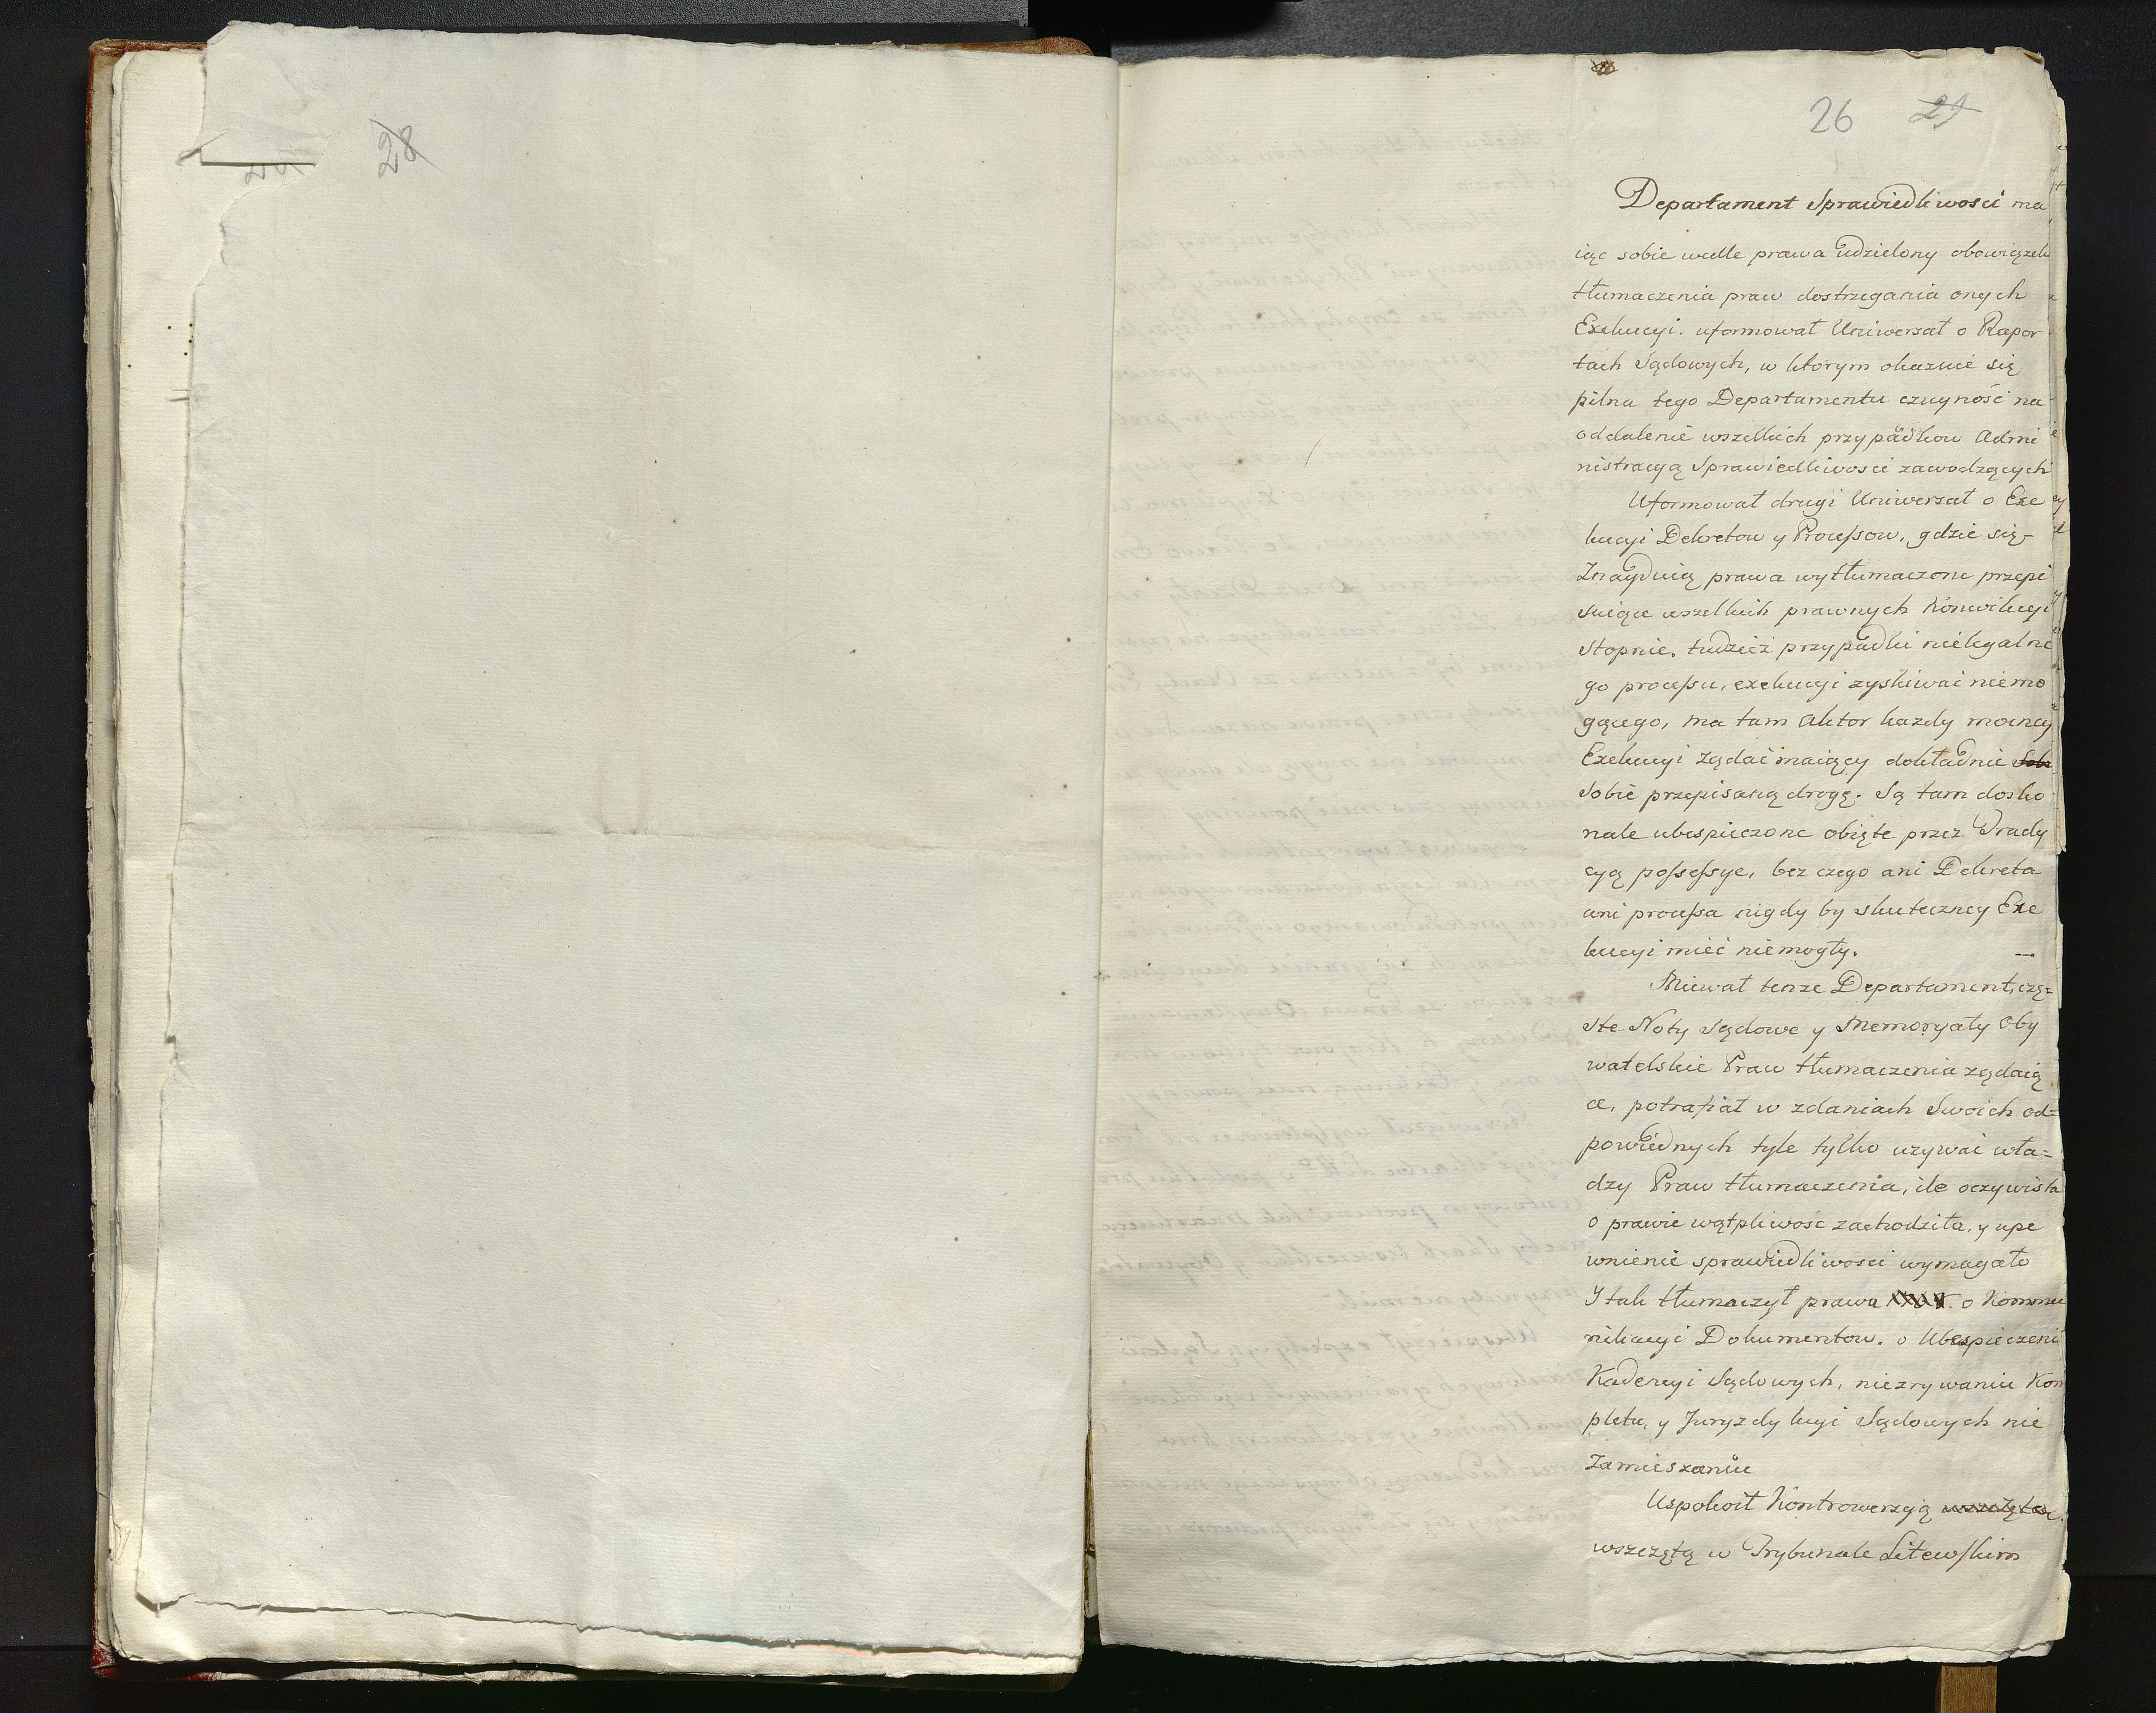 28
26 29
Departament Sprawiedliwosci ma
iąc sobie wedle prawa udzielony obowiązek
tłumaczenia praw dostrzegania onych
Exekucyi. uformował Uniwersał o Rapor
tach Sądowych, w ktorym okazuie się
pilna tego Departamentu czuyność na
oddalenie wszelkich przypadkow Admi
nistracyą Sprawiedliwosci zawodzących
Uformował drugi Uniwersał o Exe
kucyi Dekretow y Processow, gdzie się
Znayduią prawa wytłumaczone przepi
suiące wszelkich prawnych Konwikcyi
stopnie. tudzież przypadki nielegalne
go processu, exekucyi zyskiwać niemo
gącego, ma tam Aktor kazdy mocney
Exekucyi żądać maiący dokładnie Sob
Sobie przepisaną drogę. Są tam dosko
nale ubespieczone obięte przez Trady
cyą possessye, bez czego ani Dekreta
ani processa nigdy by skuteczney Exe
kucyi mieć niemogły.
Miewał tenze Departament, czę=
ste Noty Sądowe y Memoryały Oby
watelskie Praw tłumaczenia żądaią
ce, potrafiał w zdaniach Swoich od=
powiednych tyle tylko uzywać wła=
dzy Praw tłumaczenia, ile oczywista
o prawie wątpliwość zachodziła, y upe
wnienie sprawiedliwosci wymagało
Y tak tłumaczył prawa o Kommu
nikacyi Dokumentow. o Ubespieczeni
Kadencyi Sądowych, niezrywaniu Kom
pletu, y Juryzdykcyi Sądowych nie
Zamieszaniu
Uspokoił Kontrowersyą wszczętą
wszczętą w Trybunale Litewskim